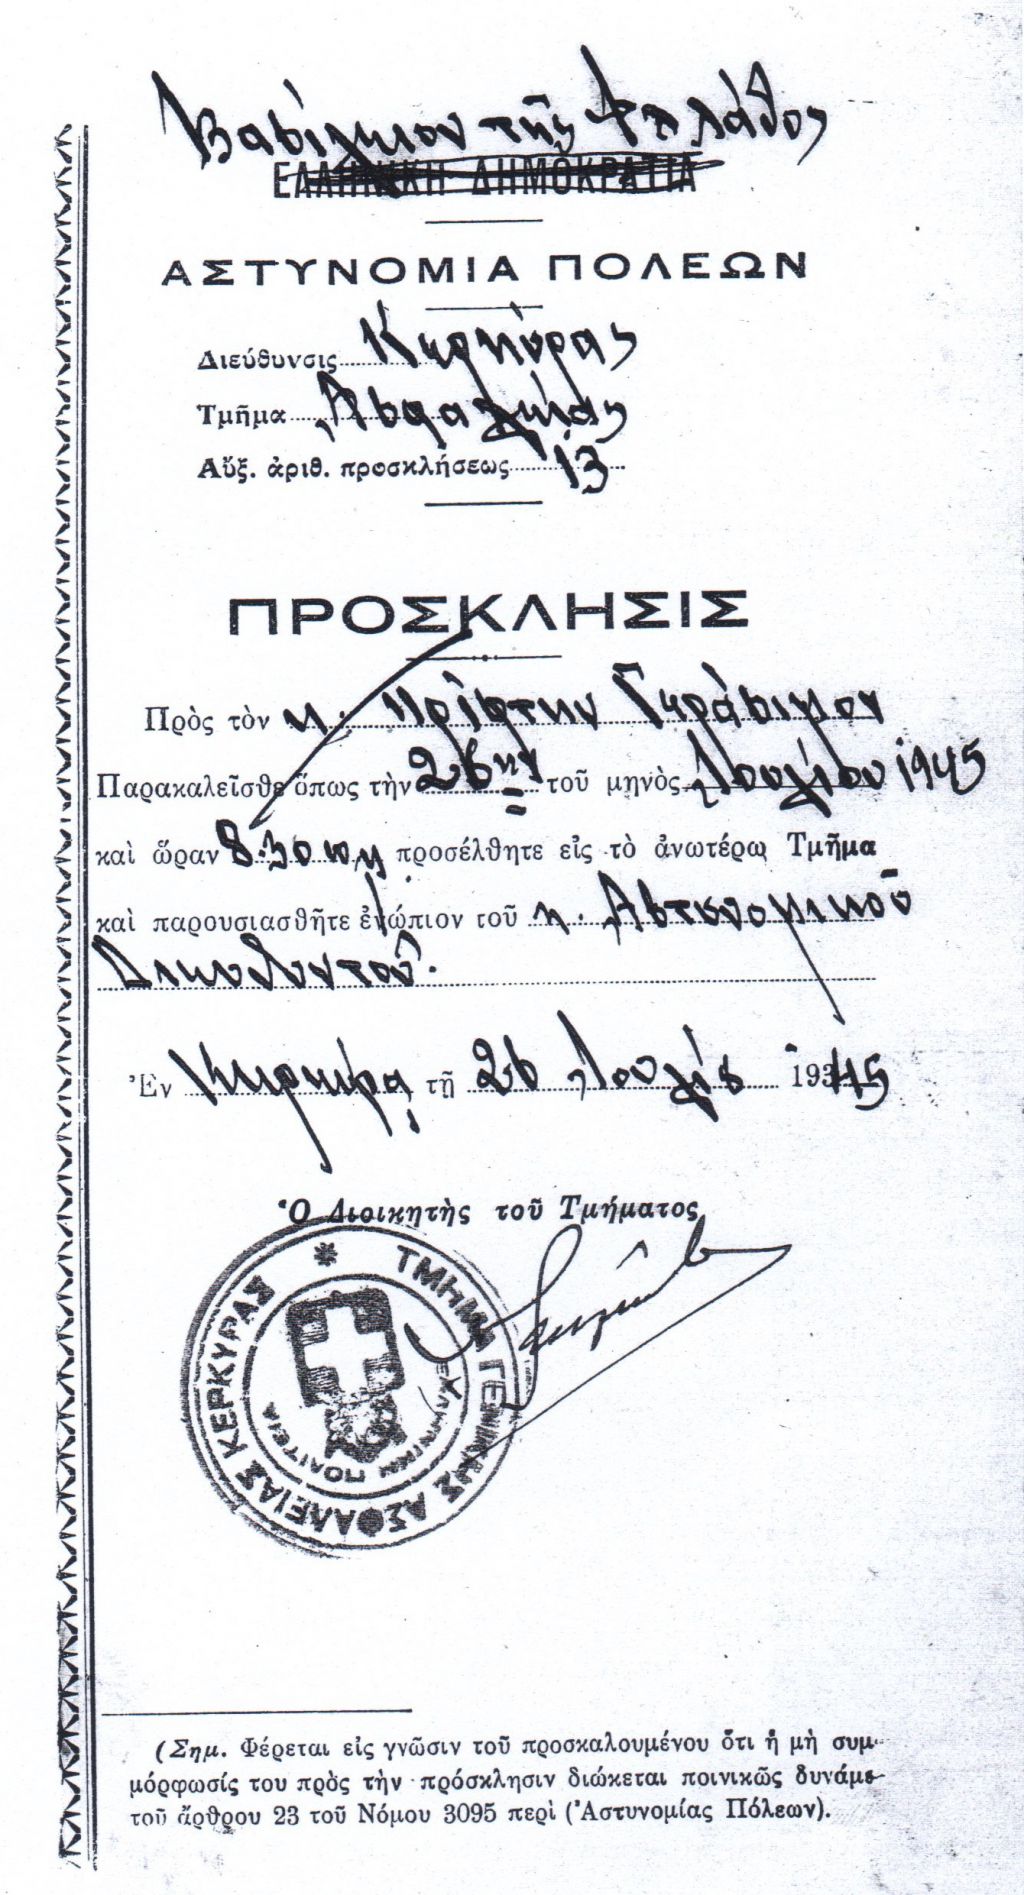 Βασίλειον τῆς Ἑλλάδος
ΕΛΛΗΝΙΚΗ ΔΗΜΟΚΡΑΤΙΑ
ΑΣΤΥΝΟΜΙΑ ΠΟΛΕΩΝ
Διεύθυνσις Κερκύρας
Τμῆμα Ἀσφαλείας
Αὔξ. ἀριθ. προσκλήσεως 13
ΠΡΟΣΚΛΗΣΙΣ
Πρὸς τὸν κ. Πρίφτην Γεράσιμον
Παρακαλεῖσθε ὅπως τὴν 26ην τοῦ μηνὸς Ἰουλίου 1945
καὶ ὥραν 8.30 πμ προσέλθητε εἰς τὸ ἀνωτέρω Τμῆμα
καὶ παρουσιασθῆτε ἐνώπιον τοῦ κ. Ἀστυνομικοῦ
Διευθυντοῦ.
Ἐν Κερκύρᾳ τῇ 26 Ἰουλίου 19345
Ὁ Διοικητὴς τοῦ Τμήματος
ΤΜΗΜΑ ΓΕΝΙΚΗΣ ΑΣΦΑΛΕΙΑΣ ΚΕΡΚΥΡΑΣ
ΕΛΛΗΝΙΚΗ ΠΟΛΙΤΕΙΑ
(Σημ. Φέρεται εἰς γνῶσιν τοῦ προσκαλουμένου ὅτι ἡ μὴ συμ-
μόρφωσίς του πρὸς τὴν πρόσκλησιν διώκεται ποινικῶς δυνάμε-
τοῦ ἄρθρου 23 τοῦ Νόμου 3095 περὶ (Ἀστυνομίας Πόλεων).